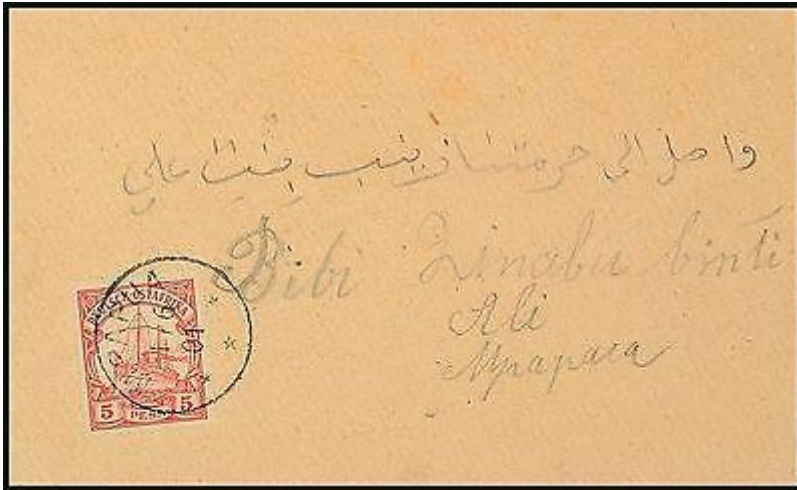 واصل الى حرمتنا زينب بنت علي
Bibi Zinabu binti
Ali
Mpapara
DEUTSCH-OSTAFRIKA
5 PESA 5